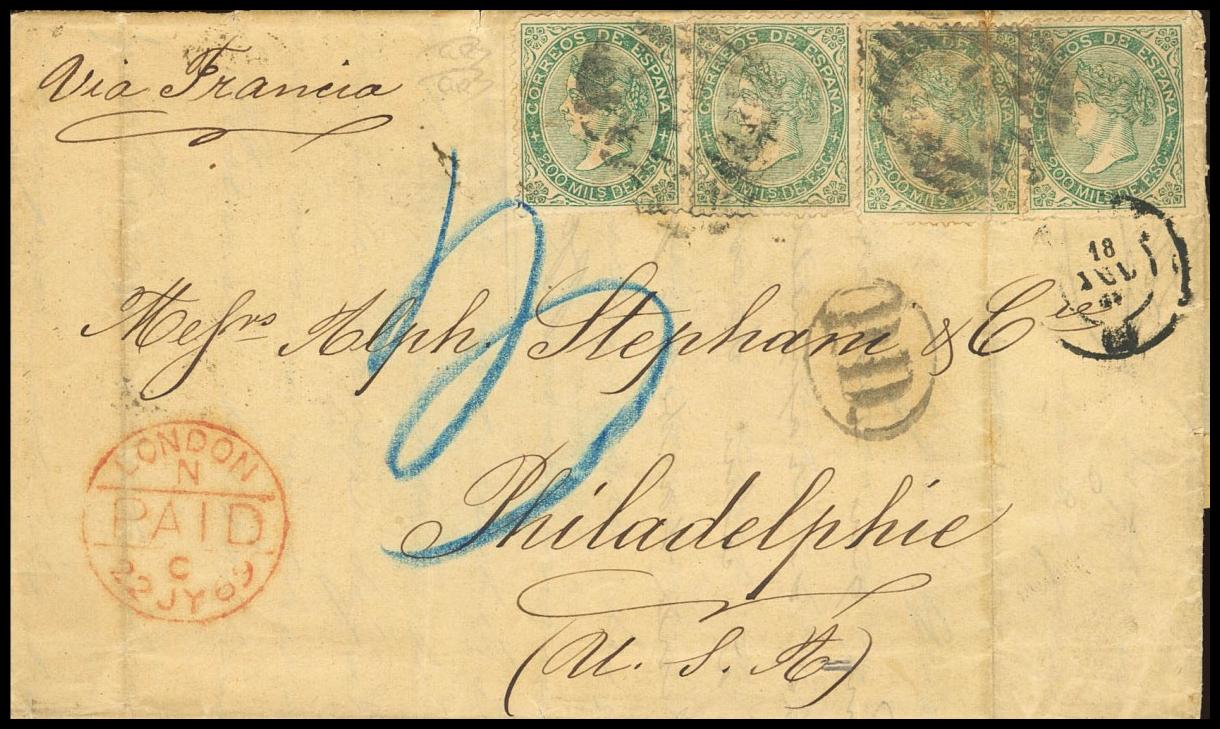 Via Francia
CORREOS DE ESPAÑA
200 MILS DE ESC.
CORREOS DE ESPAÑA
200 MILS DE ESC.
CORREOS DE ESPAÑA
200 MILS DE
CORREOS DE ESPAÑA
200 MILS DE ESC.
18
JUL
Messrs Alph. Stephani & Cie
Philadelphie
(U. S. A.)
LONDON
N
PAID
C
22 JY 69